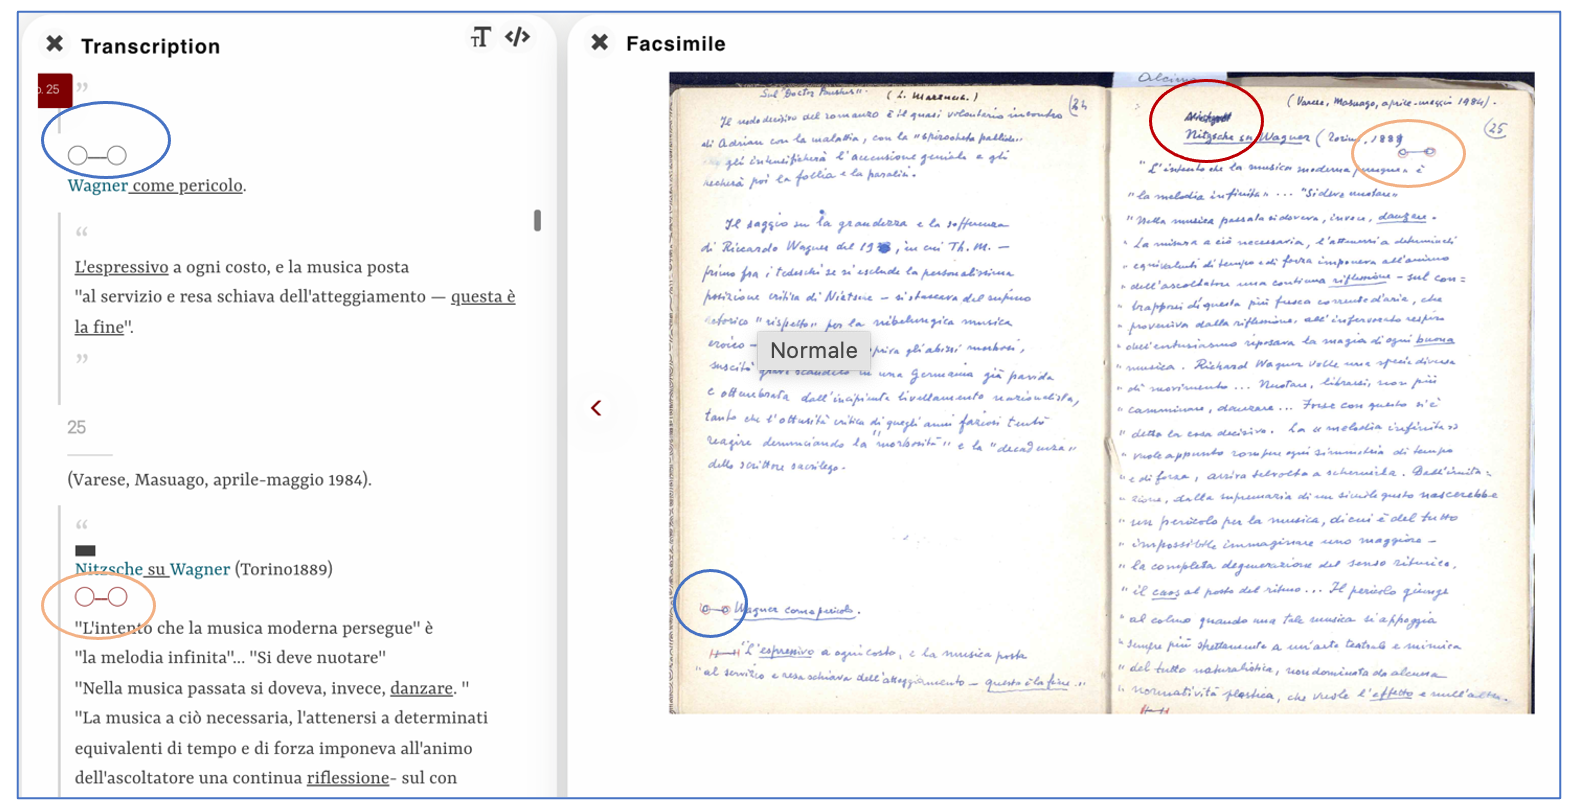 Transcription
p. 25
”
Wagner come pericolo.
“
L'espressivo a ogni costo, e la musica posta
"al servizio e resa schiava dell'atteggiamento — questa è
la fine".
”
25
(Varese, Masuago, aprile-maggio 1984).
“
Nitzsche su Wagner (Torino1889)
"L'intento che la musica moderna persegue" è
"la melodia infinita"... "Si deve nuotare"
"Nella musica passata si doveva, invece, danzare. "
"La musica a ciò necessaria, l'attenersi a determinati
equivalenti di tempo e di forza imponeva all'animo
dell'ascoltatore una continua riflessione- sul con
Facsimile
Sul "Doctor Faustus".
24
Il nodo decisivo del romanzo è il quasi volontario incontro
di Adrian con la malattia, con la "spirocheta pallida"
gli intensificherà l'accensione geniale e gli
recherà poi la follia e la paralisi.
Il saggio su la grandezza e la sofferenza
di Riccardo Wagner del 19 , in cui Th. M. —
primo fra i tedeschi se si esclude la personalissima
posizione critica di Nietsche — si staccava dal supino
retorico "rispetto" per la nibelungica musica
eroico — Normale gli abissi morbosi,
suscitò grave scandalo in una Germania già pavida
e ottenebrata dall'incipiente livellamento nazionalista,
tanto che l'ottusità critica di quegli anni faziosi tentò
reagire denunciando la "morbosità" e la "decadenza"
dello scrittore sacrilego.
Wagner come pericolo.
"L'espressivo a ogni costo, e la musica posta
"al servizio e resa schiava dell'atteggiamento — questa è la fine".
(Varese, Masuago, aprile-maggio 1984).
25
Nitzsche su Wagner (Torino, 1889
"L'intento che la musica moderna persegue" è
"la melodia infinita"... "Si deve nuotare"
"Nella musica passata si doveva, invece, danzare.
" La misura a ciò necessaria, l'attenersi a determinati
" equivalenti di tempo e di forza imponeva all'animo
" dell'ascoltatore una continua riflessione - sul con=
" trapporsi di questa più fresca corrente d'aria, che
" proveniva dalla riflessione, all'infervorato respiro
" dell'entusiasmo riposava la magia di ogni buona
" musica. Richard Wagner volle una specie diversa
" di movimento... Nuotare, librarsi, non più
" camminare, danzare... Forse con questo si è
" detta la cosa decisiva. La "melodia infinita"
" vuole appunto rompere ogni simmetria di tempo
" e di forza, arriva talvolta a schernirla. Dall'imita=
" zione, dalla supremazia di un simile gusto nascerebbe
" un pericolo per la musica, di cui è del tutto
" impossibile immaginare uno maggiore —
" la completa degenerazione del senso ritmico,
" il caos al posto del ritmo... Il pericolo giunge
" al colmo quando una tale musica si appoggia
" sempre più strettamente a un'arte teatrale e mimica
" del tutto naturalistica, non dominata da alcuna
" normatività plastica, che vuole l'effetto e null'altro.